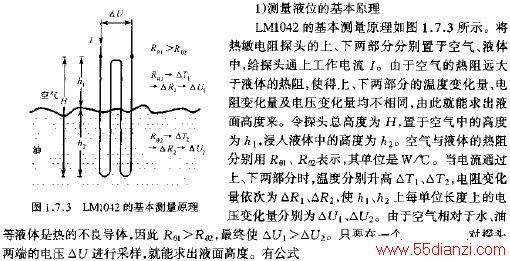 ΔU
I
Rθ1>Rθ2
Rθ1→ΔT1
→ΔR1→ΔU1
空气
h1
H
h2
油
Rθ2→ΔT2
→ΔR2→ΔU2
图 1.7.3 LM1042 的基本测量原理
1)测量液位的基本原理
LM1042 的基本测量原理如图 1.7.3 所示。将
热敏电阻探头的上、下两部分分别置于空气、液体
中,给探头通上工作电流 I。由于空气的热阻远大
于液体的热阻,使得上、下两部分的温度变化量、电
阻变化量及电压变化量均不相同,由此就能求出液
面高度来。令探头总高度为 H,置于空气中的高度
为 h1,浸入液体中的高度为 h2。空气与液体的热阻
分别用 Rθ1、Rθ2表示,其单位是 W/℃。当电流通过
上、下两部分时,温度分别升高 ΔT1、ΔT2,电阻变化
量依次为 ΔR1、ΔR2,使 h1、h2 上每单位长度上的电
压变化量分别为 ΔU1、ΔU2。由于空气相对于水、油
等液体是热的不良导体,因此 Rθ1>Rθ2,最终使 ΔU1>ΔU2。只要在一个 对探头
两端的电压 ΔU 进行采样,就能求出液面高度。有公式
www.55dianzi.com